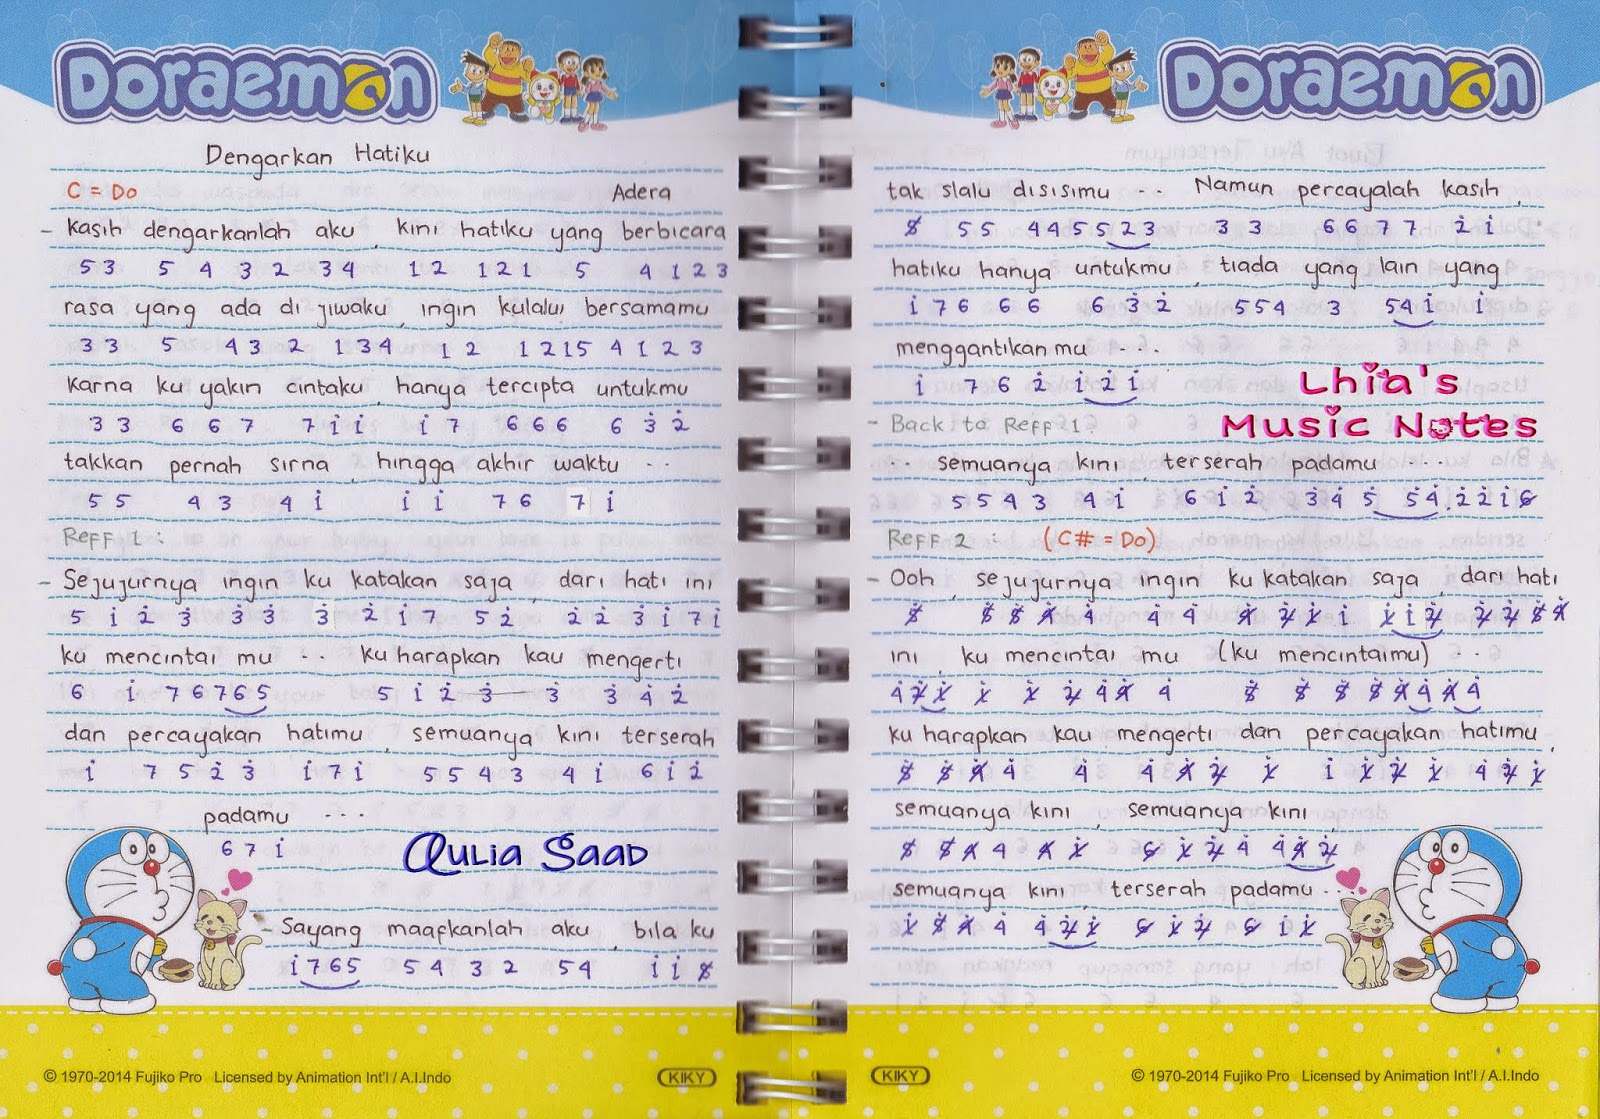 Doraemon
Dengarkan Hatiku
C = Do Adera
- Kasih dengarkanlah aku, kini hatiku yang berbicara
5 3 5 4 3 2 3 4 1 2 1 2 1 5 4 1 2 3
rasa yang ada di jiwaku, ingin kulalui bersamamu
3 3 5 4 3 2 1 3 4 1 2 1 2 1 5 4 1 2 3
karna ku yakin cintaku, hanya tercipta untukmu
3 3 6 6 7 7 i i i 7 6 6 6 6 3̇ 2̇
takkan pernah sirna, hingga akhir waktu ..
5 5 4 3 4 i i i 7 6 7 i
Reff 1 :
- Sejujurnya ingin ku katakan saja, dari hati ini
5 i 2̇ 3̇ 3̇ 3̇ 3̇ 2̇ i 7 5 2̇ 2̇ 2̇ 3̇ i 7 i
ku mencintai mu .. ku harapkan kau mengerti
6 i 7 6 7 6 5 5 i 2̇ 3̇ 3̇ 3̇ 4̇ 2̇
dan percayakan hatimu, semuanya kini terserah
i 7 5 2̇ 3̇ i 7 i 5 5 4 3 4 i 6 i 2̇
padamu ...
6 7 i
Aulia Saad
- Sayang maafkanlah aku, bila ku
i 7 6 5 5 4 3 2 5 4 i i 5̸
© 1970-2014 Fujiko Pro Licensed by Animation Int'l / A.I.Indo
KIKY
Doraemon
tak slalu disisimu .. Namun percayalah kasih,
5̸ 5 5 4 4 5 5 2 3 3 3 6 6 7 7 2̇ i
hatiku hanya untukmu, tiada yang lain yang
i 7 6 6 6 6 3̇ 2̇ 5 5 4 3 5 4 i i
menggantikan mu ...
i 7 6 2̇ i 2̇ i
Lhia's
Music Notes
- Back to Reff 1.
.. semuanya kini, terserah padamu ...
5 5 4 3 4 i 6 i 2̇ 3̇ 4̇ 5̇ 5̇ 4̇ . 2̇ 2̇ i 6̸
Reff 2 : (C# = Do)
- Ooh, sejujurnya ingin ku katakan saja, dari hati
ini, ku mencintai mu (ku mencintaimu) ..
ku harapkan kau mengerti dan percayakan hatimu,
semuanya kini, semuanya kini,
semuanya kini, terserah padamu ...
KIKY
© 1970-2014 Fujiko Pro Licensed by Animation Int'l / A.I.Indo